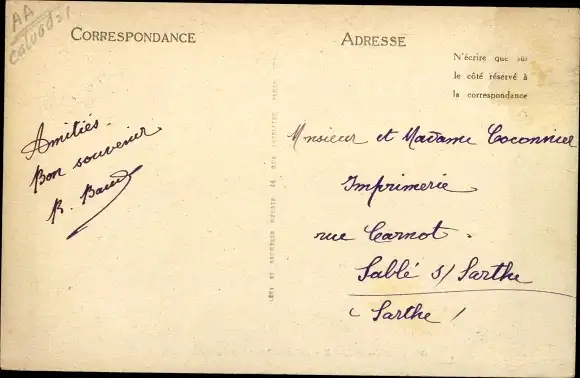 AA
Calvados
CORRESPONDANCE
ADRESSE
N'écrire que sur
le côté réservé à
la correspondance
Amitiés.
Bon souvenir
R.
Monsieur et Madame Coconnier
Imprimerie
rue Carnot.
Sablé s/ Sarthe
(Sarthe)